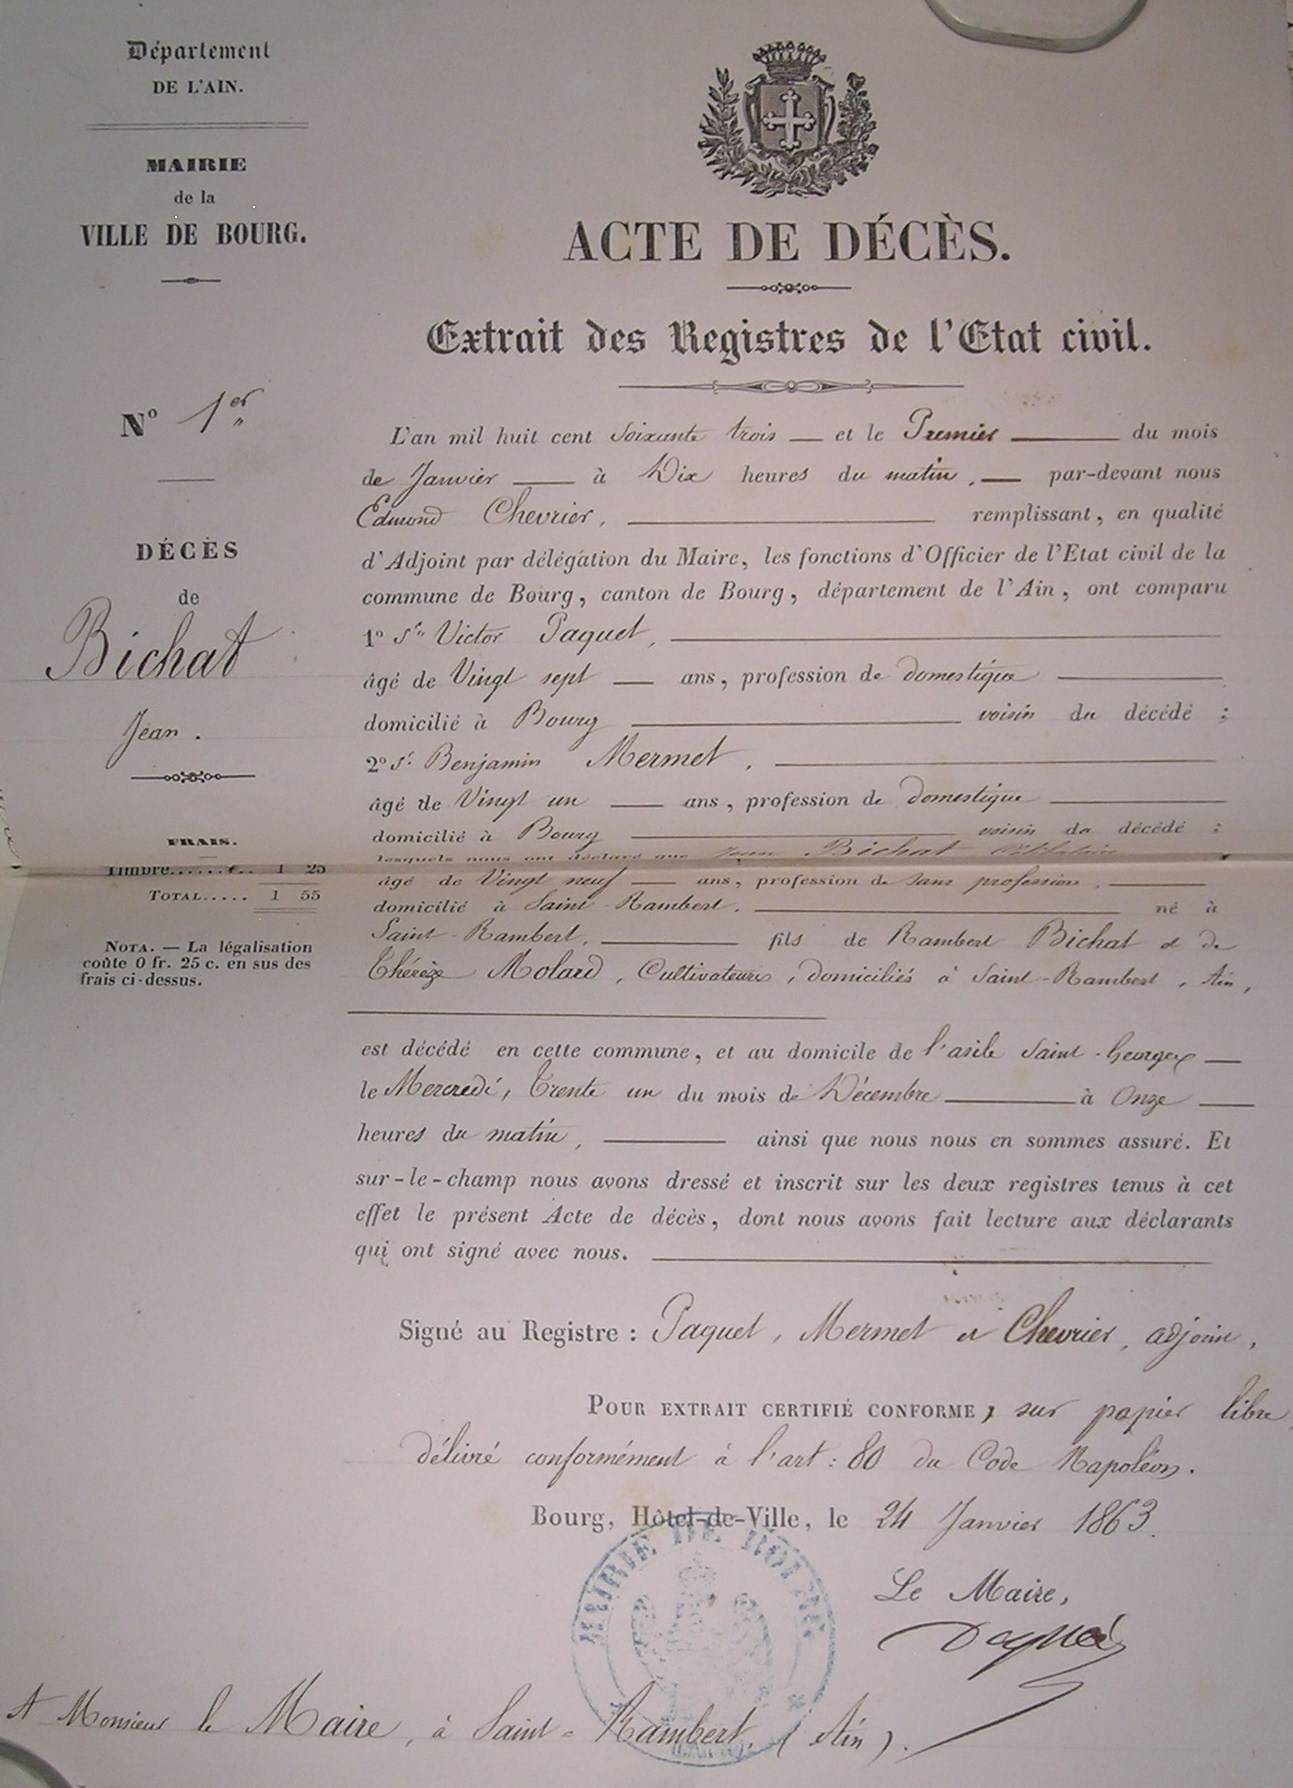 Département
DE L'AIN.
MAIRIE
de la
VILLE DE BOURG.
ACTE DE DÉCÈS.
Extrait des Registres de l'Etat civil.
N° 1er
DÉCÈS
de
Bichat
Jean.
FRAIS.
Timbre...... 1 25
TOTAL..... 1 55
NOTA. — La légalisation
coûte 0 fr. 25 c. en sus des
frais ci-dessus.
L'an mil huit cent Soixante trois — et le Premier — du mois
de Janvier — à Dix heures du matin, — par-devant nous
Edmond Chevrier, — remplissant, en qualité
d'Adjoint par délégation du Maire, les fonctions d'Officier de l'Etat civil de la
commune de Bourg, canton de Bourg, département de l'Ain, ont comparu
1° Sr Victor Paquet, —
âgé de Vingt sept — ans, profession de domestique —
domicilié à Bourg — voisin du décédé ;
2° Sr Benjamin Mermet, —
âgé de Vingt un — ans, profession de domestique —
domicilié à Bourg — voisin du décédé ;
lesquels nous ont déclaré que Jean Bichat Célibataire
âgé de Vingt neuf — ans, profession de sans profession, —
domicilié à Saint-Rambert, — né à
Saint-Rambert, — fils de Rambert Bichat et de
Thérèze Molard, Cultivateurs, domiciliés à Saint-Rambert, Ain,
est décédé en cette commune, et au domicile de l'asile Saint-Georges —
le Mercredi, Trente un du mois de Décembre — à Onze —
heures du matin, — ainsi que nous nous en sommes assuré. Et
sur-le-champ nous avons dressé et inscrit sur les deux registres tenus à cet
effet le présent Acte de décès, dont nous avons fait lecture aux déclarants
qui ont signé avec nous. —
Signé au Registre : Paquet, Mermet et Chevrier, adjoint,
POUR EXTRAIT CERTIFIÉ CONFORME, sur papier libre
délivré conformément à l'art : 80 du Code Napoléon.
Bourg, Hôtel-de-Ville, le 24 Janvier 1863.
Le Maire,
MAIRIE DE BOURG
A Monsieur le Maire, à Saint-Rambert, (Ain).